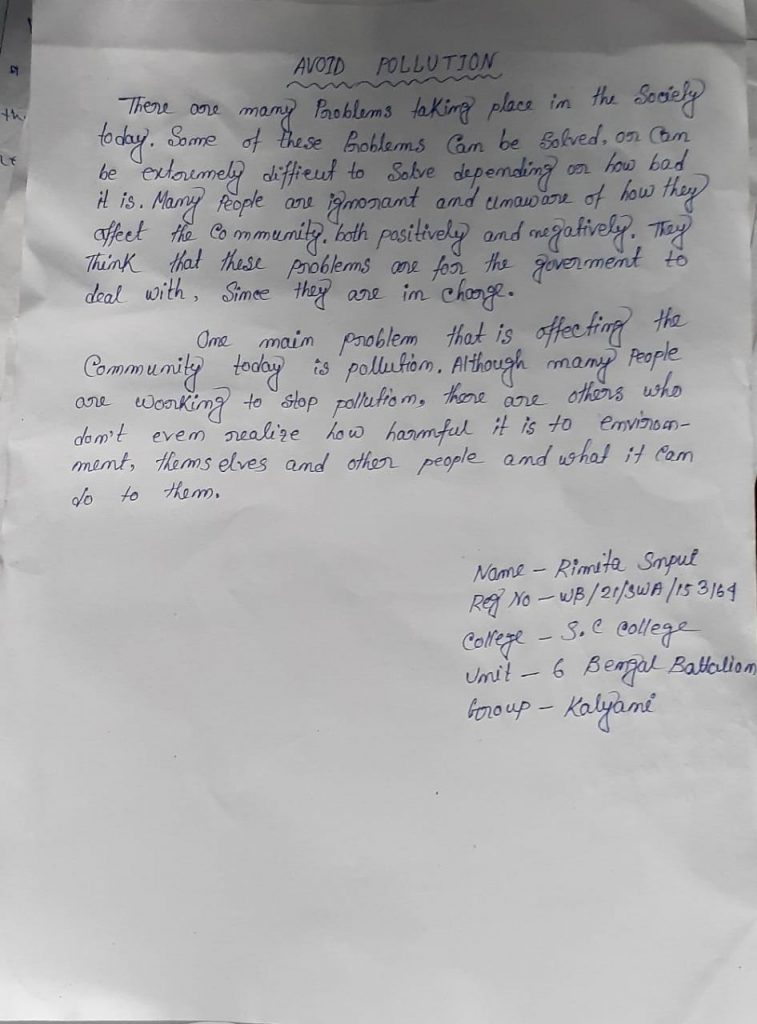 AVOID POLLUTION
There are many Problems taking place in the Society
today. Some of these Problems Can be Solved, or Can
be extoremely difficut to Solve depending on how bad
it is. Many People are ignorant and unaware of how they
affect the Community, both positively and negatively. They
Think that these problems are for the goverment to
deal with, Since they are in charge.
One main problem that is affecting the
Community today is pollution. Although many People
are working to stop pollution, there are others who
don't even realize how harmful it is to environ-
ment, themselves and other people and what it Can
do to them.
Name - Rimita
Reg No - WB/21/SWA/153164
College - S.C College
Unit - 6 Bengal Battalion
Group - Kalyani